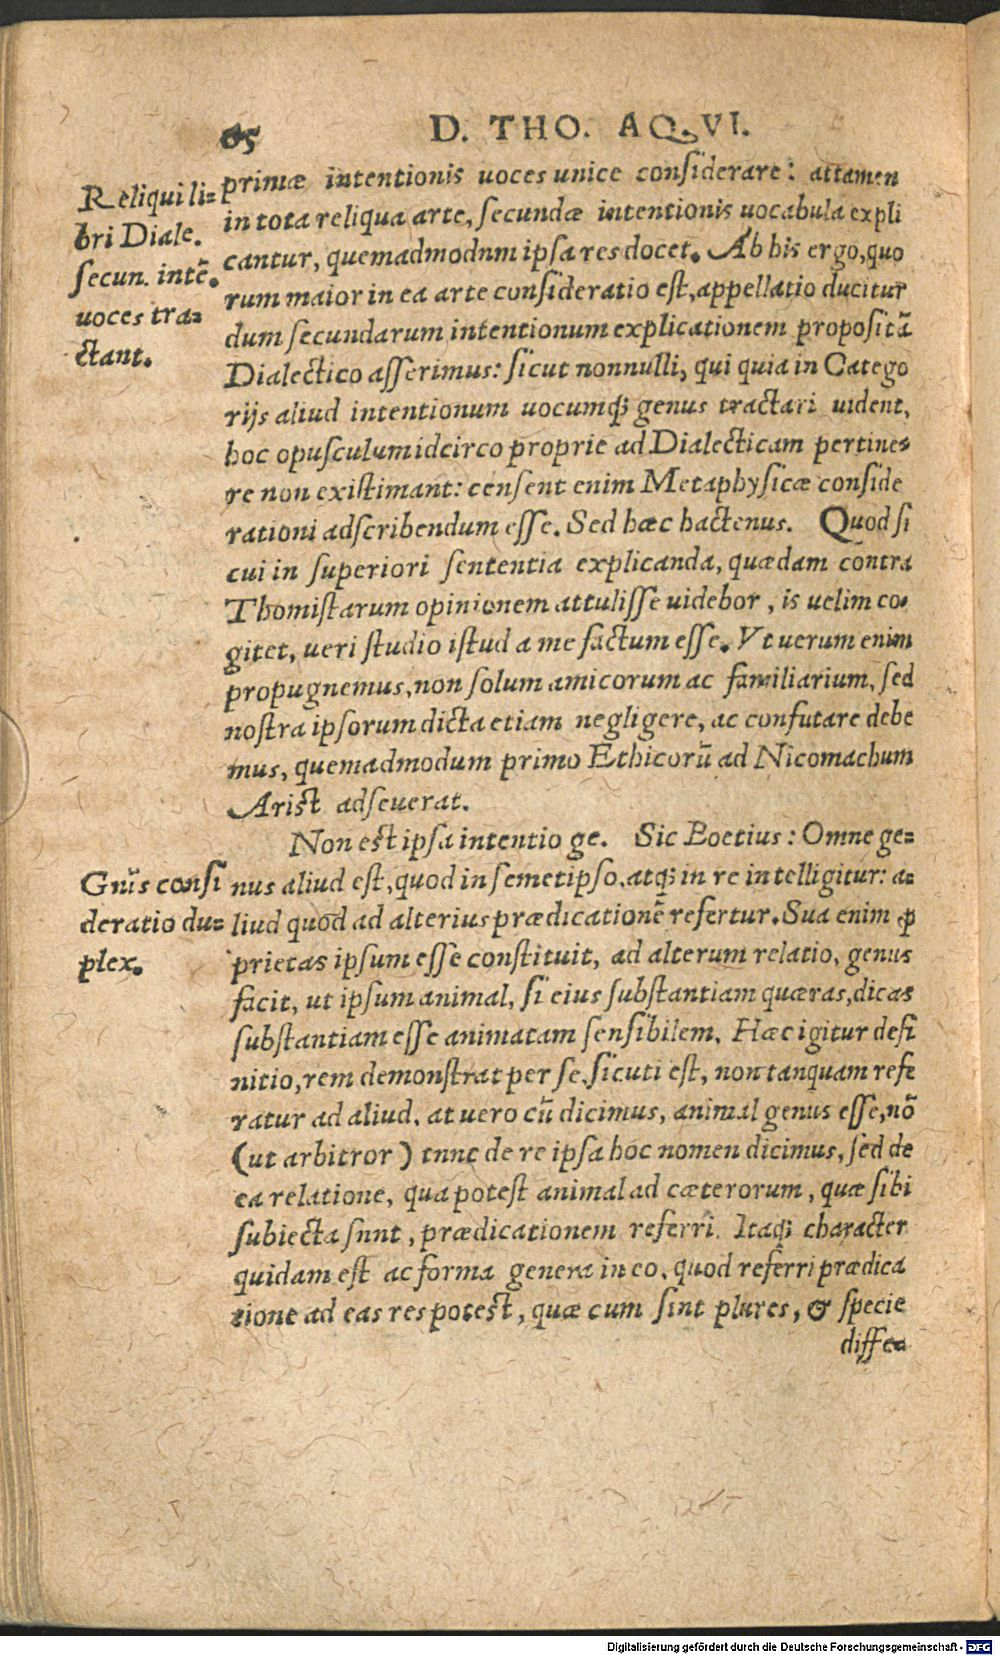 D. THO. AQVI.
Reliqui li=
bri Diale.
secun. intē.
uoces tra=
ctant.
primæ intentionis uoces unice considerare: attamen
in tota reliqua arte, secundæ intentionis uocabula expli
cantur, quemadmodnm ipsa res docet. Ab his ergo, quo
rum maior in ea arte consideratio est, appellatio ducitur
dum secundarum intentionum explicationem propositā
Dialectico asserimus: sicut nonnulli, qui quia in Catego
rijs aliud intentionum uocumq; genus tractari uident,
hoc opusculum idcirco proprie ad Dialecticam pertine=
re non existimant: censent enim Metaphysicæ conside
rationi adscribendum esse. Sed hæc hactenus. Quod si
cui in superiori sententia explicanda, quædam contra
Thomistarum opinionem attulisse uidebor, is uelim co=
gitet, ueri studio istud a me factum esse. Vt uerum enim
propugnemus, non solum amicorum ac familiarium, sed
nostra ipsorum dicta etiam negligere, ac confutare debe
mus, quemadmodum primo Ethicorū ad Nicomachum
Arist adseuerat.
Non est ipsa intentio ge. Sic Boetius: Omne ge=
Gn̄is consi
deratio du=
plex.
nus aliud est, quod in semetipso, atq; in re intelligitur: a=
liud quod ad alterius prædicationē refertur. Sua enim ꝓ
prietas ipsum esse constituit, ad alterum relatio, genus
facit, ut ipsum animal, si eius substantiam quæras, dicas
substantiam esse animatam sensibilem. Hæc igitur defi
nitio, rem demonstrat per se, sicuti est, non tanquam refe
ratur ad aliud, at uero cū dicimus, animal genus esse, nō
(ut arbitror) tnnc de re ipsa hoc nomen dicimus, sed de
ea relatione, qua potest animal ad cæterorum, quæ sibi
subiecta snnt, prædicationem referri. Itaq; character
quidam est ac forma genera in eo, quod referri prædica
tione ad eas res potest, quæ cum sint plures, & specie
diffe=
Digitalisierung gefördert durch die Deutsche Forschungsgemeinschaft - DFG